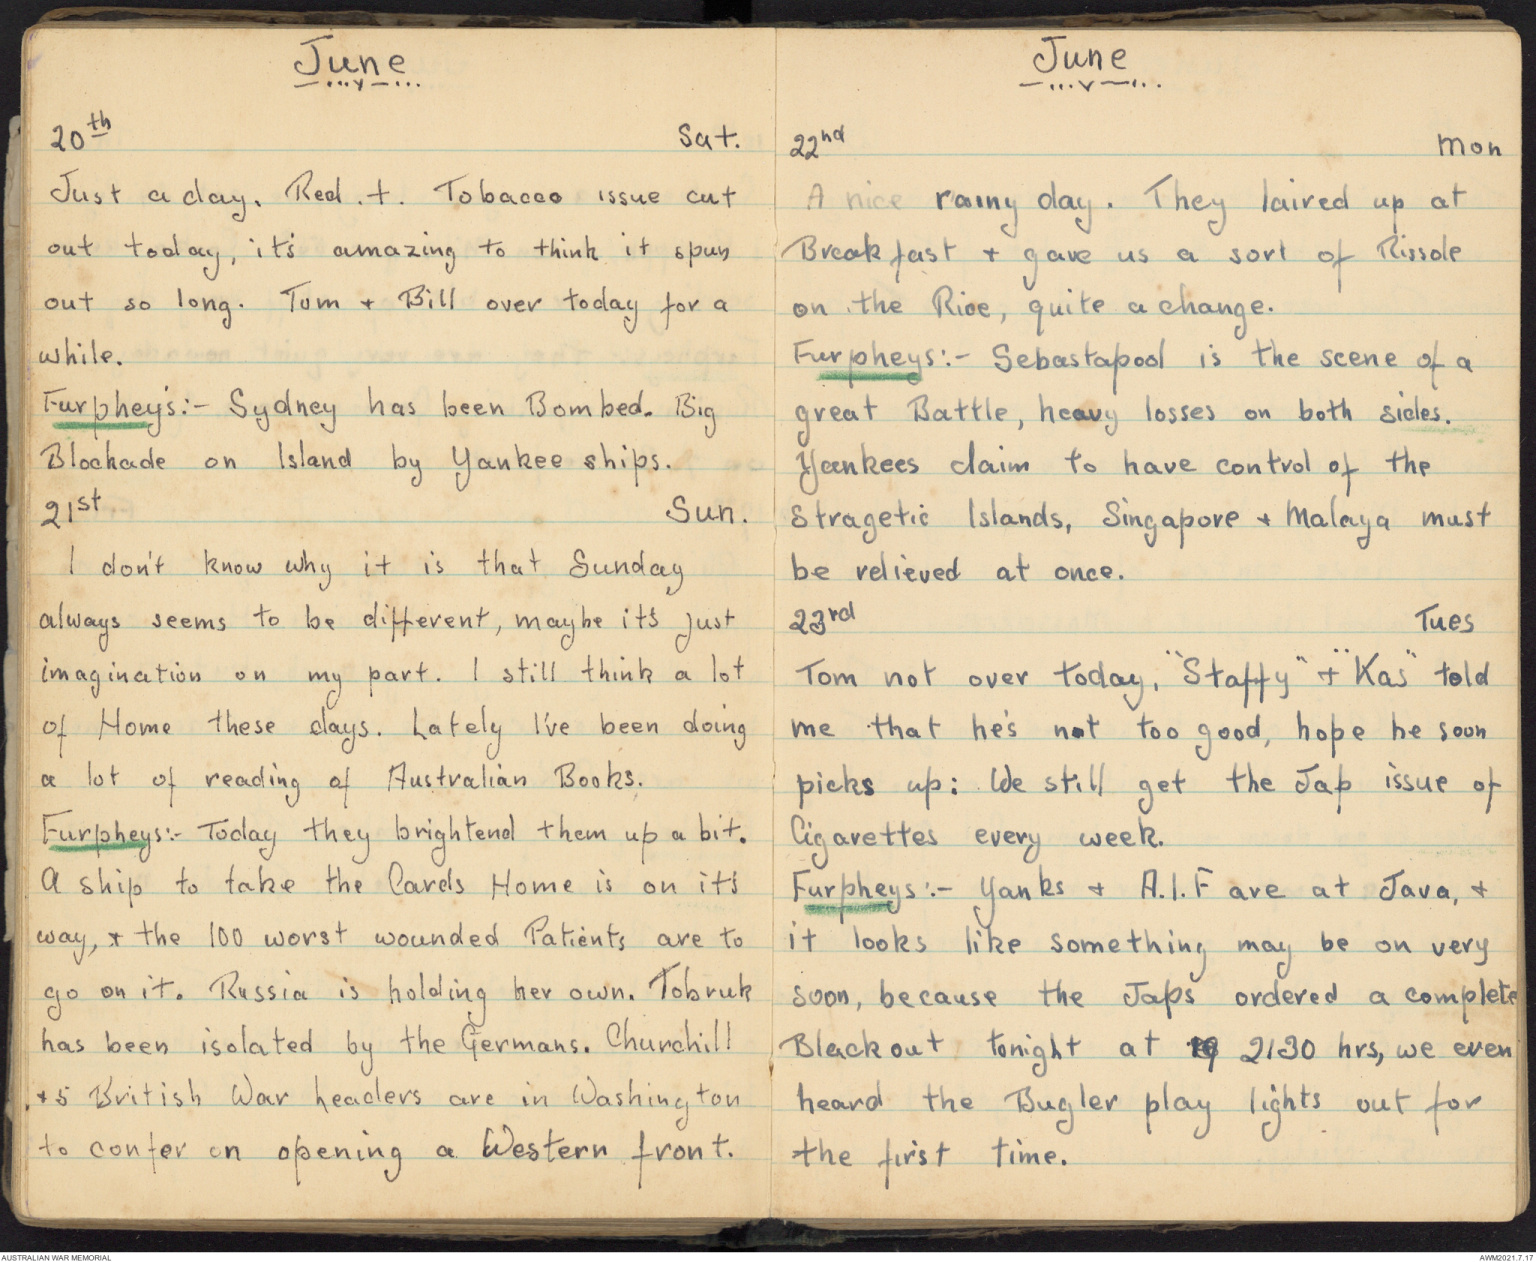 June
20th Sat.
Just a day. Red .+. Tobacco issue cut
out today, it's amazing to think it spun
out so long. Tom + Bill over today for a
while.
Furphey's:- Sydney has been Bombed. Big
Blockade on Island by Yankee ships.
21st Sun.
I don't know why it is that Sunday
always seems to be different, maybe it's just
imagination on my part. I still think a lot
of Home these days. Lately I've been doing
a lot of reading of Australian Books.
Furpheys:- Today they brightend them up a bit.
A ship to take the Cards Home is on it's
way, + the 100 worst wounded Patients are to
go on it. Russia is holding her own. Tobruk
has been isolated by the Germans. Churchill
+ 5 British War Leaders are in Washington
to confer on opening a Western front.
June
22nd Mon
A nice rainy day. They laired up at
Breakfast + gave us a sort of Rissole
on the Rice, quite a change.
Furpheys:- Sebastapool is the scene of a
great Battle, heavy losses on both sides.
Yankees claim to have control of the
Stragetic Islands, Singapore + Malaya must
be relieved at once.
23rd Tues
Tom not over today, "Staffy" + "Kas" told
me that he's not too good, hope he soon
picks up: We still get the Jap issue of
Cigarettes every week.
Furpheys:- Yanks + A.I.F are at Java, +
it looks like something may be on very
soon, because the Japs ordered a complete
Blackout tonight at 2130 hrs, we even
heard the Bugler play lights out for
the first time.
AUSTRALIAN WAR MEMORIAL AWM2021.7.17